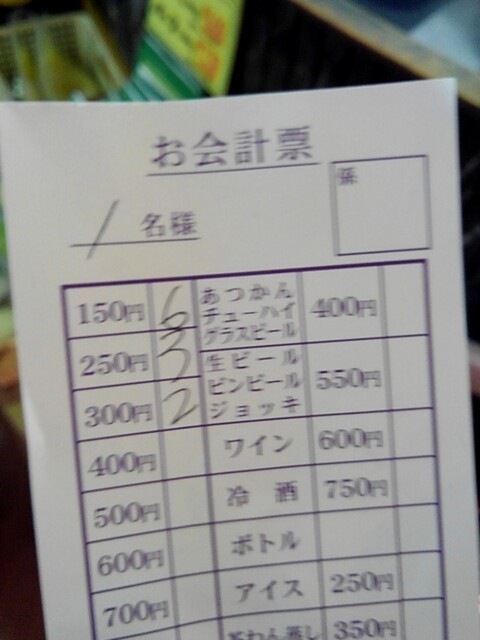 お会計票
係
1 名様
150円 6 あつかん チューハイ グラスビール 400円
250円 3 生ビール ビンビール ジョッキ 550円
300円 2
400円 ワイン 600円
500円 冷 酒 750円
600円 ボトル
700円 アイス 250円
茶わん蒸し 350円